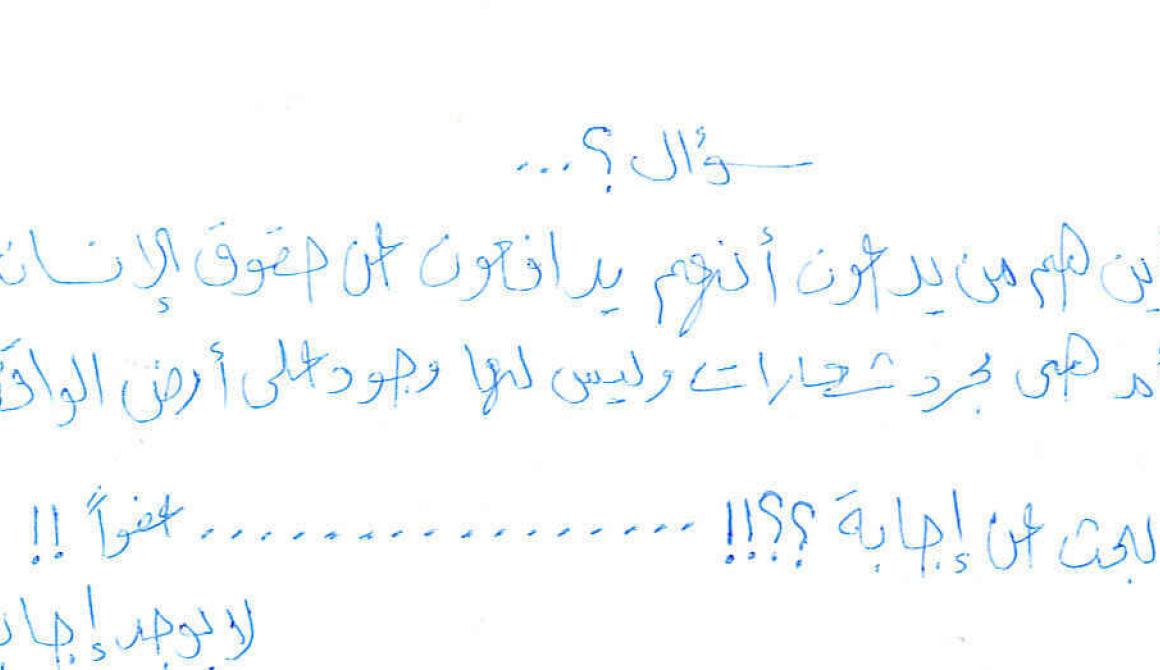 سؤال؟...
أين هم من يدعون أنهم يدافعون عن حقوق الإنسان
أم هى مجرد شعارات وليس لها وجود على أرض الواقع
لبحث عن إجابة ؟؟!! .................. عفواً !!
لا يوجد إجابـ